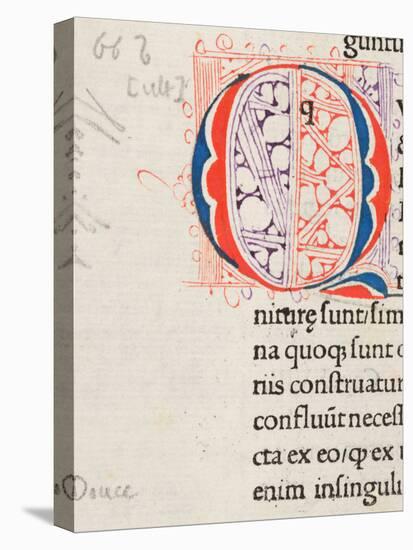 [ult]
guntu
Q
q
niturę ſunt/ſim
na quoqꝫ ſunt
riis conſtruatur
confluūt neceſſ
cta ex eo/ꝙ ex
Douce
enim inſinguli